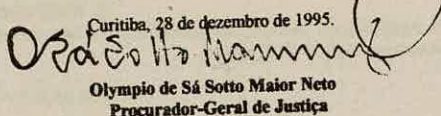 Curitiba, 28 de dezembro de 1995.
Olympio de Sá Sotto Maior Neto
Procurador-Geral de Justiça